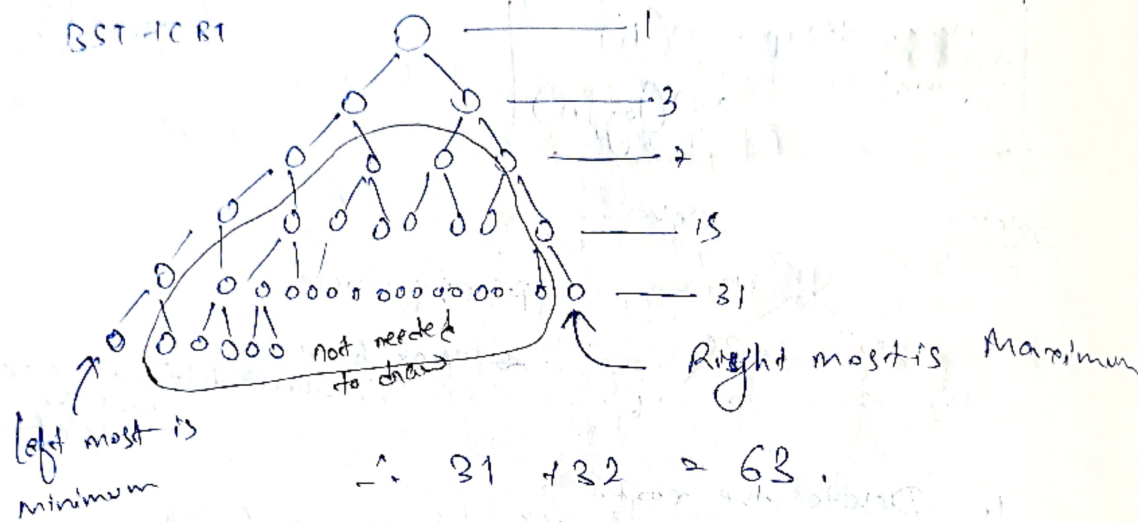 BST + CBT
1
3
7
15
31
not needed
to draw
Right most is Maximum
Left most is
minimum
∴ 31 + 32 = 63.